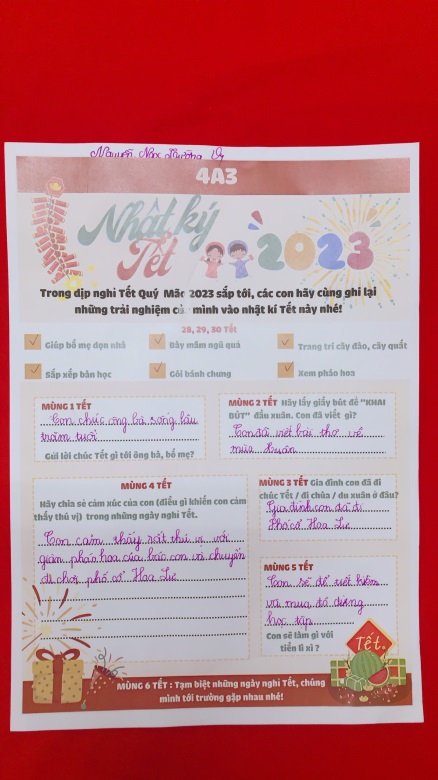 Nguyễn Ngọc Phương Vy
4A3
Nhật ký
Tết
2023
Trong dịp nghỉ Tết Quý Mão 2023 sắp tới, các con hãy cùng ghi lại
những trải nghiệm của mình vào nhật kí Tết này nhé!
28, 29, 30 Tết
Giúp bố mẹ dọn nhà
Bày mâm ngũ quả
Trang trí cây đào, cây quất
Sắp xếp bàn học
Gói bánh chưng
Xem pháo hoa
MÙNG 1 TẾT
Con chúc ông bà sống lâu
trăm tuổi
Gửi lời chúc Tết gì tới ông bà, bố mẹ?
MÙNG 2 TẾT Hãy lấy giấy bút để "KHAI
BÚT" đầu xuân. Con đã viết gì?
Con đã viết bài thơ về
mùa xuân
MÙNG 4 TẾT
Hãy chia sẻ cảm xúc của con (điều gì khiến con cảm
thấy thú vị) trong những ngày nghỉ Tết.
Con cảm thấy rất thú vị với
giàn pháo hoa của bác con và chuyến
đi chơi phố cổ Hoa Lư
MÙNG 3 TẾT Gia đình con đã đi
chúc Tết / đi chùa / du xuân ở đâu?
Gia đình con đã đi
Phố cổ Hoa Lư
MÙNG 5 TẾT
Con sẽ để tiết kiệm
và mua đồ dùng
học tập
Con sẽ làm gì với
tiền lì xì ?
Tết
MÙNG 6 TẾT : Tạm biệt những ngày nghỉ Tết, chúng
mình tới trường gặp nhau nhé!